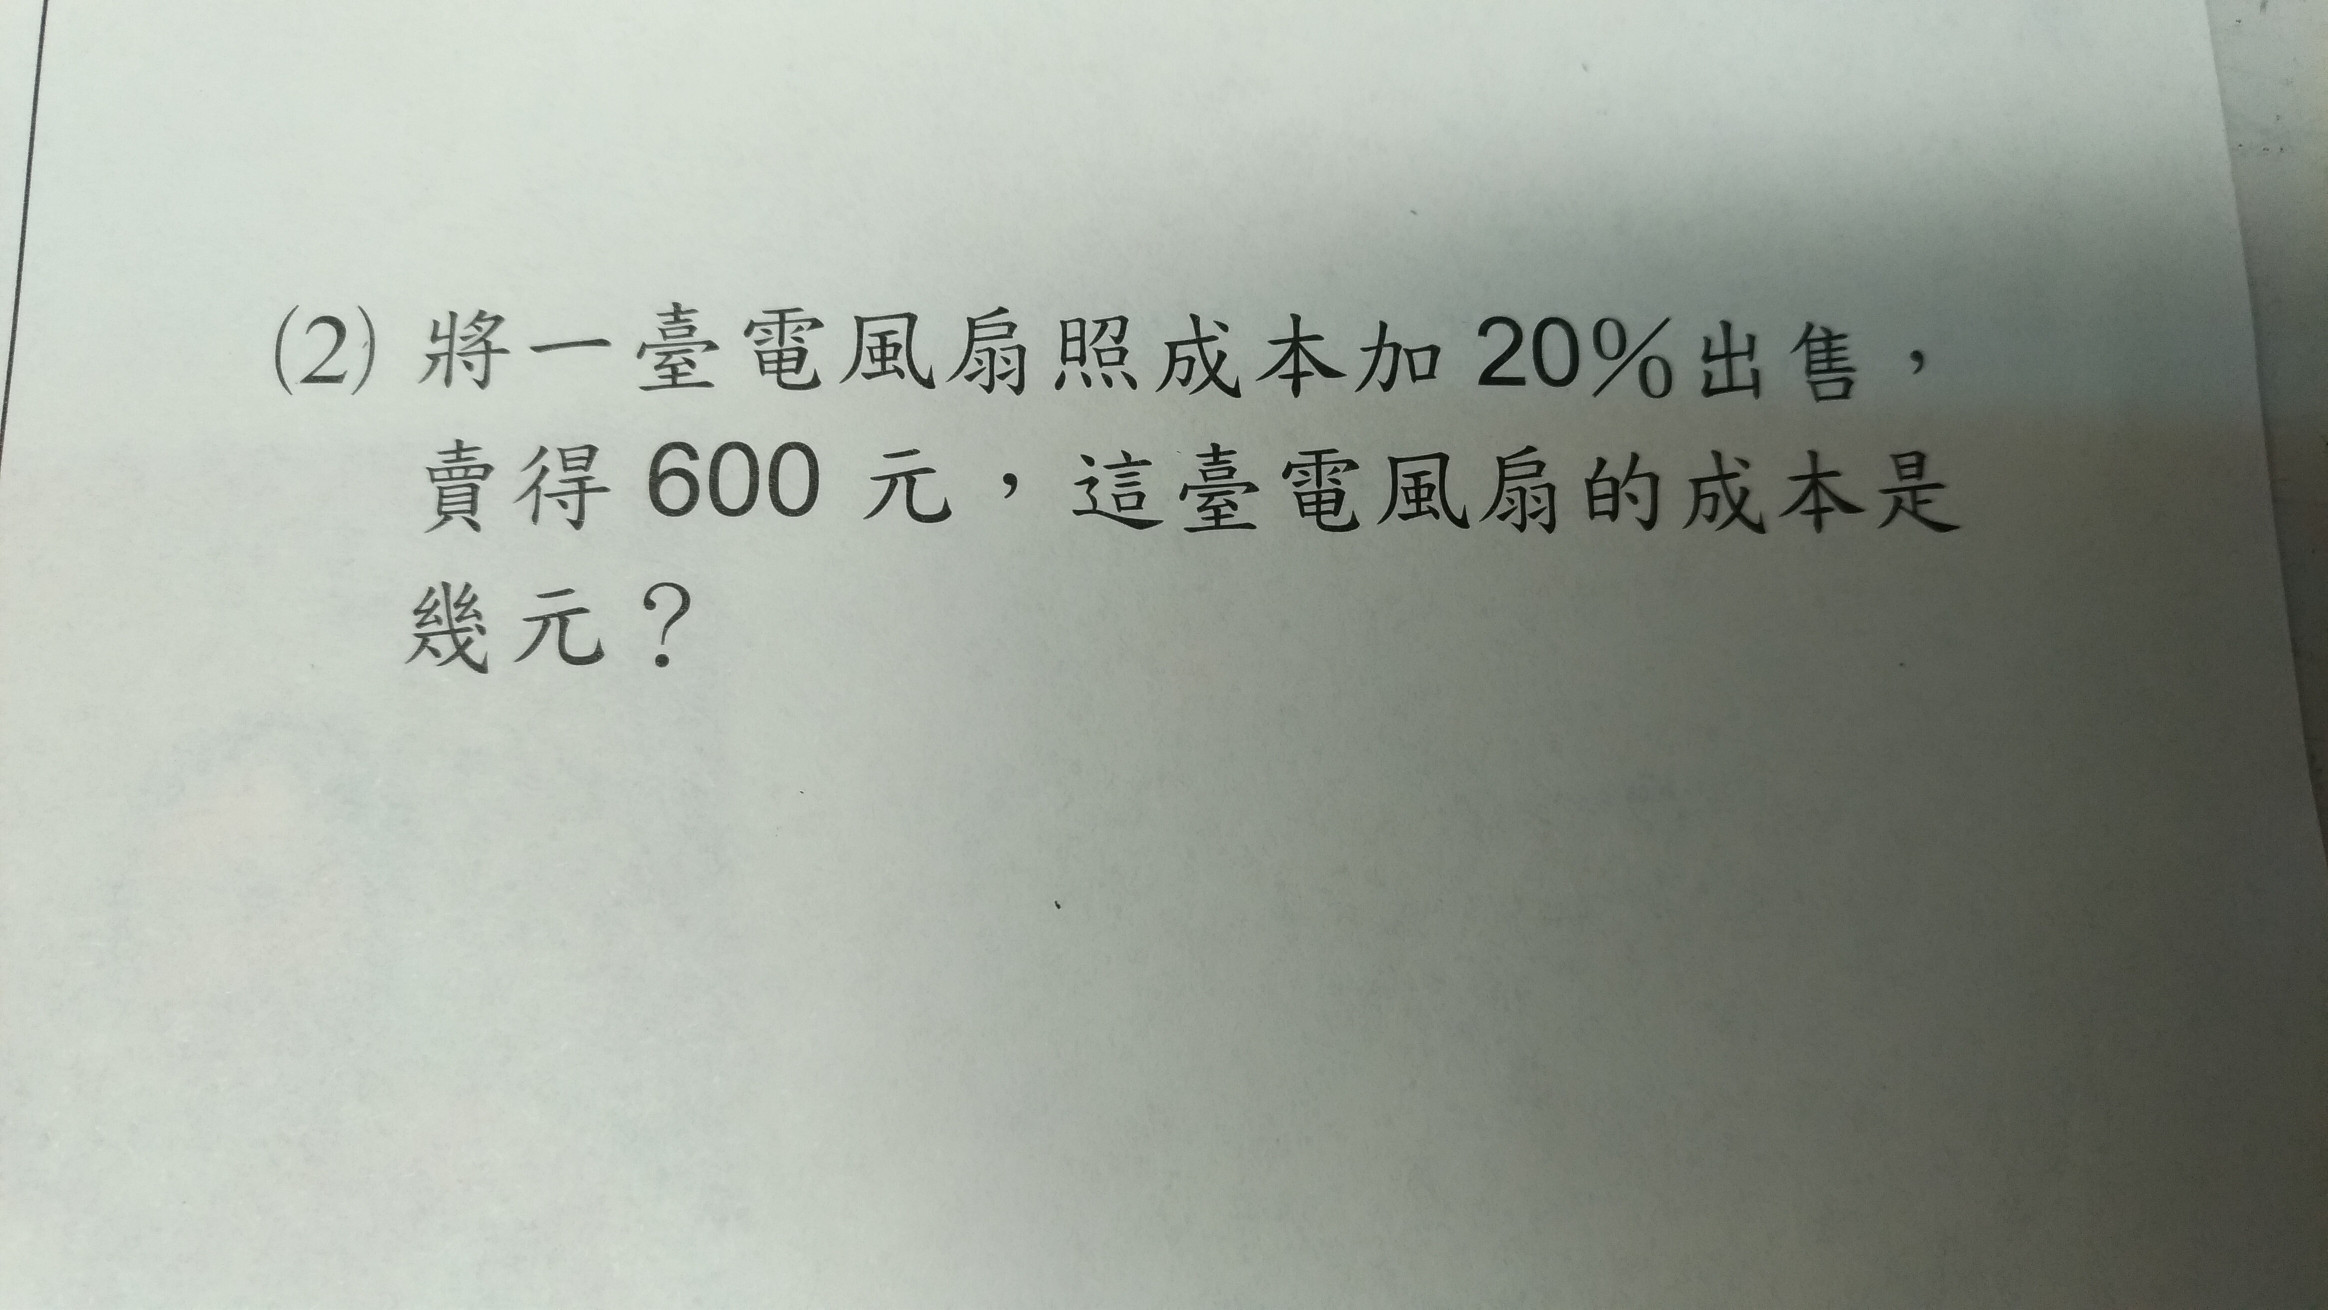 (2) 將一臺電風扇照成本加 20%出售，
賣得 600 元，這臺電風扇的成本是
幾元？